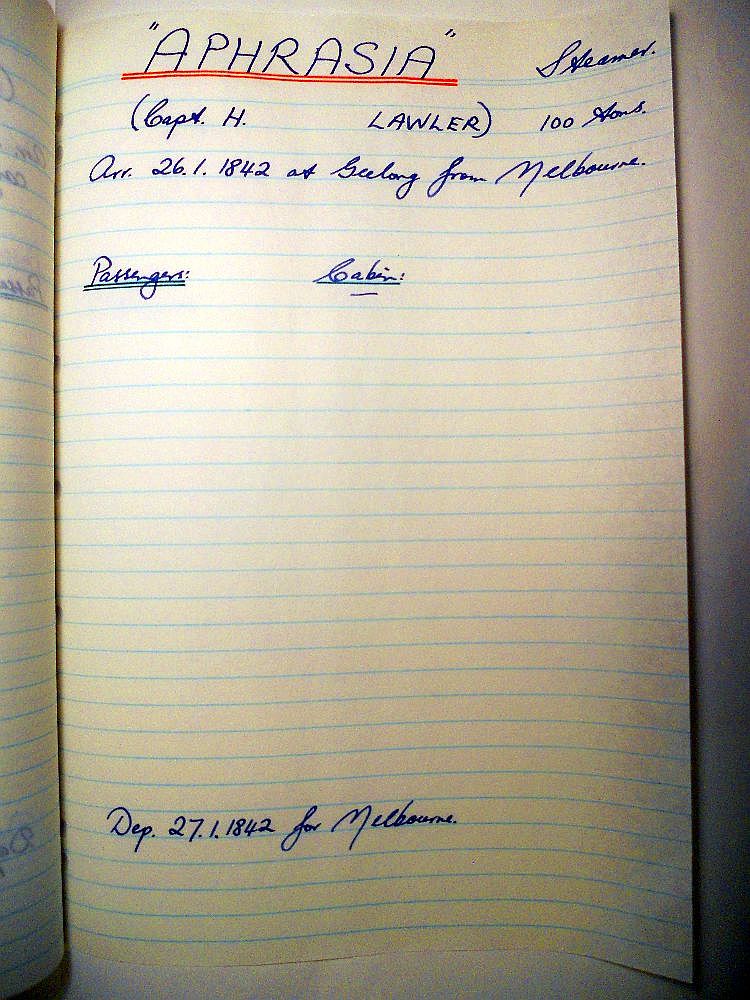 "APHRASIA" Steamer.
(Capt. H. LAWLER) 100 tons.
Arr. 26.1.1842 at Geelong from Melbourne.
Passengers: Cabin:
Dep. 27.1.1842 for Melbourne.